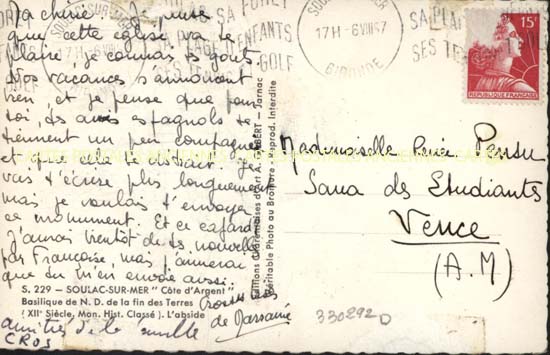 Ma chérie. Je pense
que cette église va te
plaire, je connais tes goûts
Nos vacances s'annoncent
bien et je pense que pour
toi, les amis espagnols te
tiennent un peu compagnie
et que cela te distrait. Je
vais t'écrire plus longuement
mais je voulais t'envoyer
ce monument. Et ce cafard
J'aurai bientôt de tes nouvelles
par Françoise, mais j'aimerai
que tu m'en envoie aussi.
S. 229 - SOULAC-SUR-MER "Côte d'Argent"
Basilique de N. D. de la fin des Terres
( XII° Siècle, Mon. Hist. Classé ). L'abside
Grosses bises
de Marraine
amitiés de la famille
CROS
Editions Charentaises d'Art A. GILBERT - Jarnac
Véritable Photo au Bromure - Reprod. Interdite
SOULAC-SUR-MER
17H - 6 VIII 57
GIRONDE
SA FORET
SA PLAGE D'ENFANTS
GOLF
SOULAC-SUR-MER
17H - 6 VIII 57
GIRONDE
SA PLA
SES TE
15F
REPUBLIQUE FRANÇAISE
Mademoiselle Renée Pensu
Sana des Etudiants
Vence
(A.M)
330292D